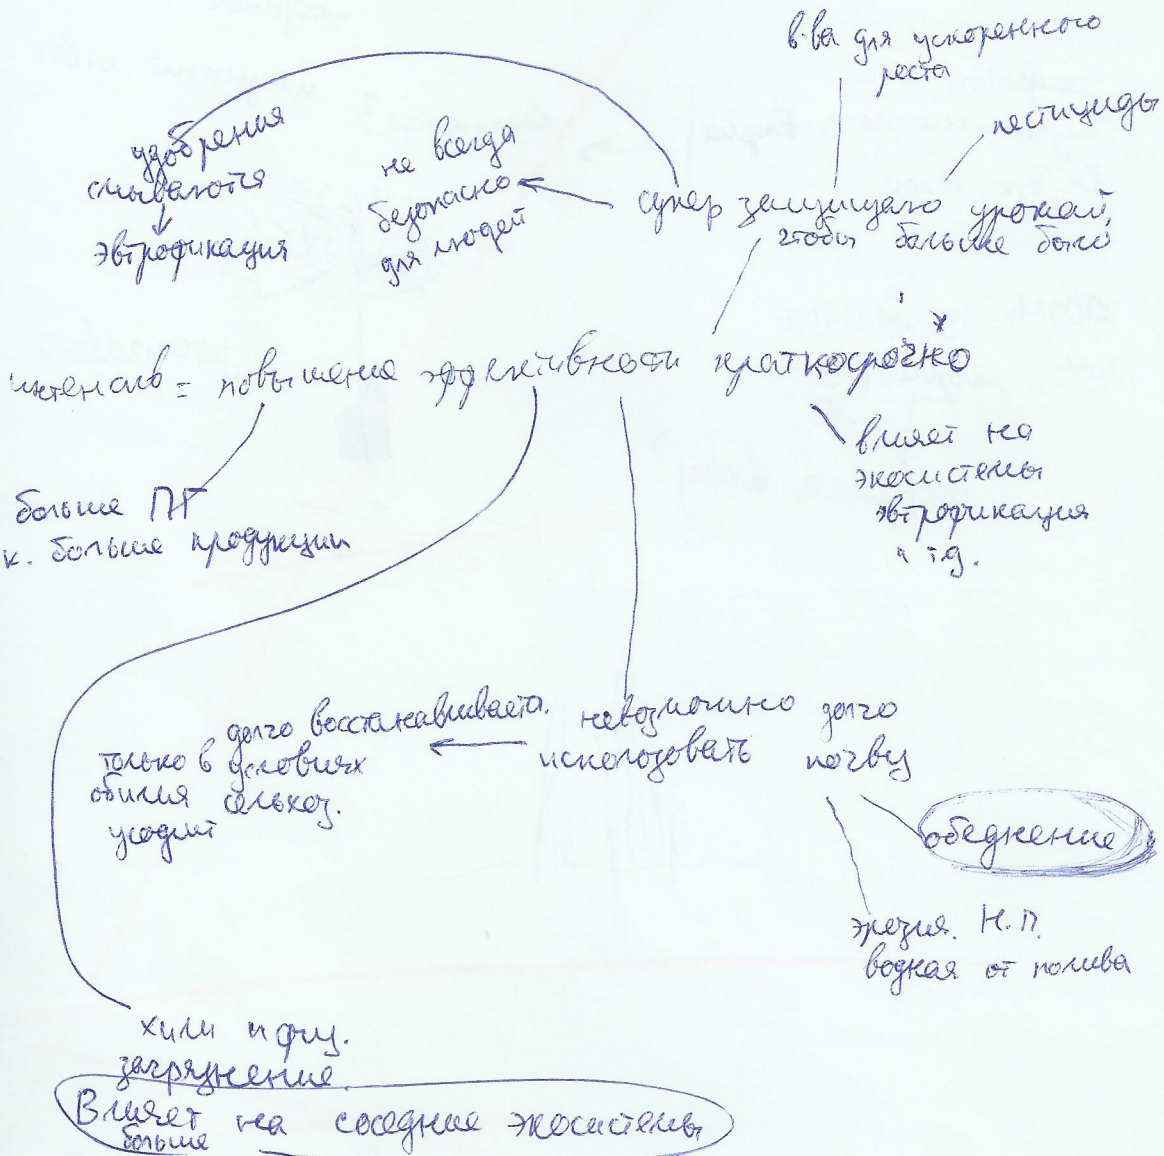 в-ва для ускоренного
роста
пестициды
удобрения
смываются
эвтрофикация
не всегда
безопасно
для людей
супер защищаю урожай,
чтобы больше было
интенсив = повышение эффективности краткосрочно
влияет на
экосистемы
эвтрофикация
и т.д.
больше ПГ
к. больше продукции
долго восстанавливаета.
только в условиях
обилия сельхоз.
угодий
невозможно долго
исползовать почву
обеднение
эрозия. Н.П.
водная от полива
хим и физ.
загрязнение.
Влияет на соседние экосистемы
больше